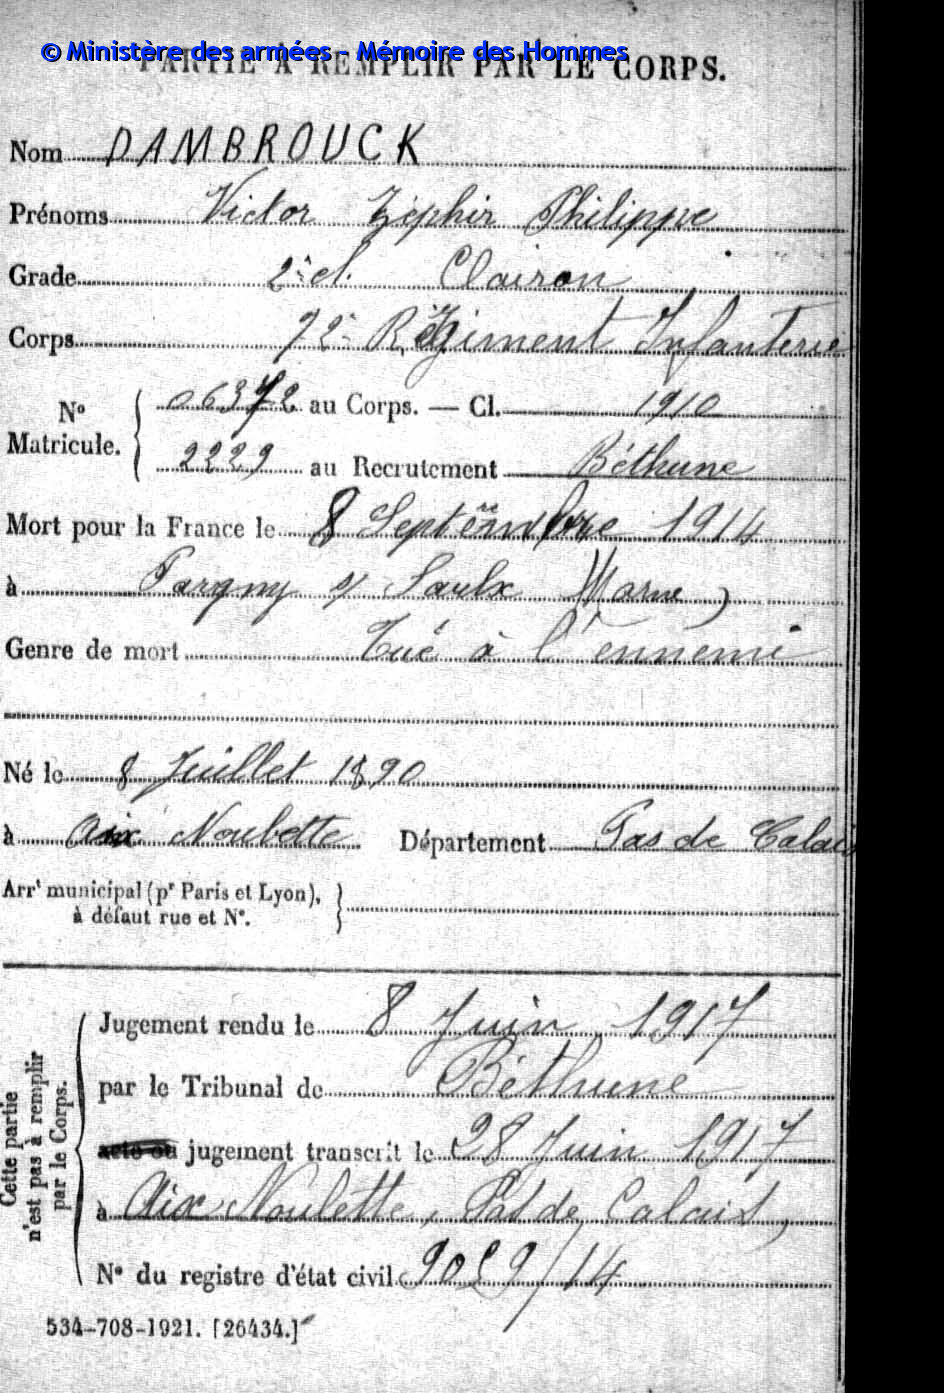 © Ministère des armées - Mémoire des Hommes
PARTIE À REMPLIR PAR LE CORPS.
Nom DAMBROUCK
Prénoms Victor Zéphir Philippe
Grade 2e cl. Clairon
Corps 72e Régiment Infanterie
No Matricule. 06372 au Corps. — Cl. 1910
2229 au Recrutement Béthune
Mort pour la France le 8 Septembre 1914
à Pargny s/ Saulx Marne)
Genre de mort Tué à l'ennemi
Né le 8 Juillet 1890
à Aix Noulette Département Pas de Calais
Arrt municipal (pr Paris et Lyon),
à défaut rue et No.
Cette partie
n'est pas à remplir
par le Corps.
Jugement rendu le 8 Juin 1917
par le Tribunal de Béthune
acte ou jugement transcrit le 28 Juin 1917
à Aix Noulette, Pas de Calais,
No du registre d'état civil 9059/14
534-708-1921. [26434.]